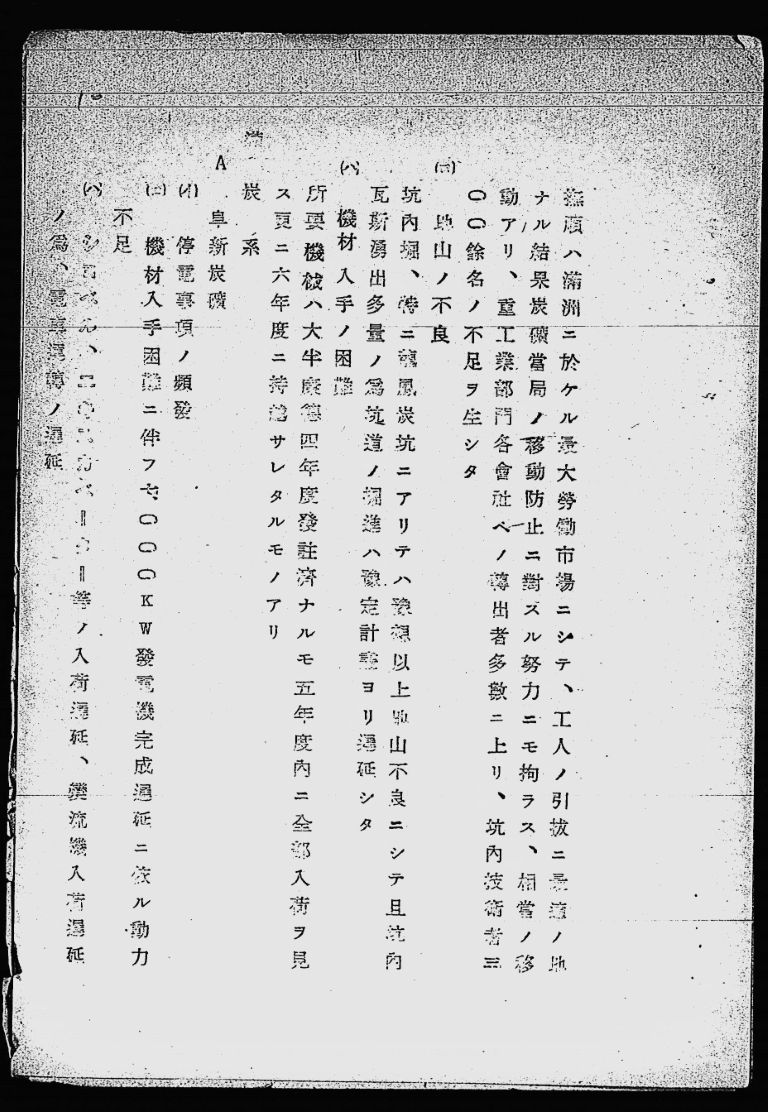 撫順ハ滿洲ニ於ケル最大勞働市場ニシテ、工人ノ引拔ニ最適ノ地
ナル結果炭礦當局ノ移動防止ニ對スル努力ニモ拘ラス、相當ノ移
動アリ、重工業部門各會社ヘノ轉出者多數ニ上リ、坑內技術者三
〇〇餘名ノ不足ヲ生シタ
(二) 地山ノ不良
坑內堀、特ニ龍鳳炭坑ニアリテハ豫想以上地山不良ニシテ且坑內
瓦斯湧出多量ノ爲坑道ノ堀進ハ豫定計畫ヨリ遲延シタ
(ハ) 機材入手ノ困難
所要機械ハ大半康德四年度發註濟ナルモ五年度內ニ全部入荷ヲ見
ス更ニ六年度ニ持越サレタルモノアリ
滿炭系
A 阜新炭礦
(イ) 停電事項ノ頻發
(ロ) 機材入手困難ニ伴フ七、〇〇〇KW發電機完成遲延ニ依ル動力
不足
(ハ) ショベル、エキスカベーター等ノ入荷遲延、變流機入荷遲延
ノ爲、電車運轉ノ遲延